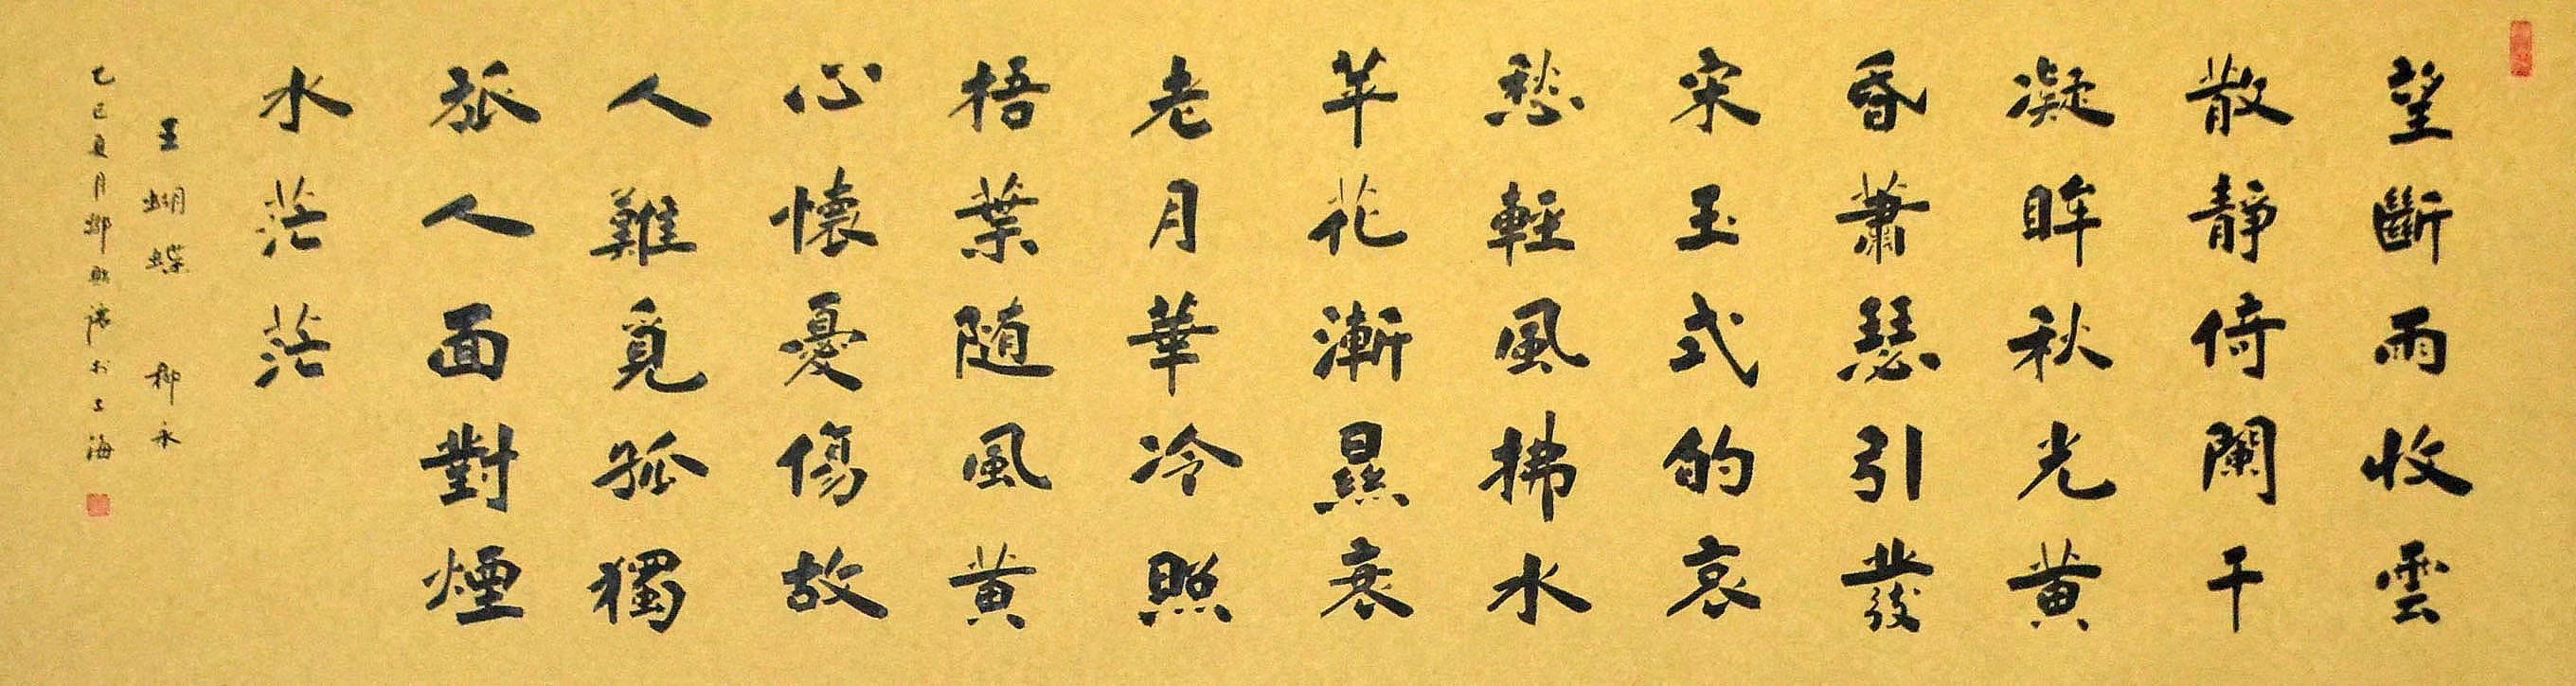 望斷雨收雲
散靜倚闌干
凝眸秋光黄
昏蕭瑟引發
宋玉式的哀
愁輕風拂水
苹花漸㬎衰
老月華冷照
梧葉随風黄
心懷憂傷故
人難覓孤獨
孤人面對煙
水茫茫
玉蝴蝶 柳永
乙巳夏月鄒於上海